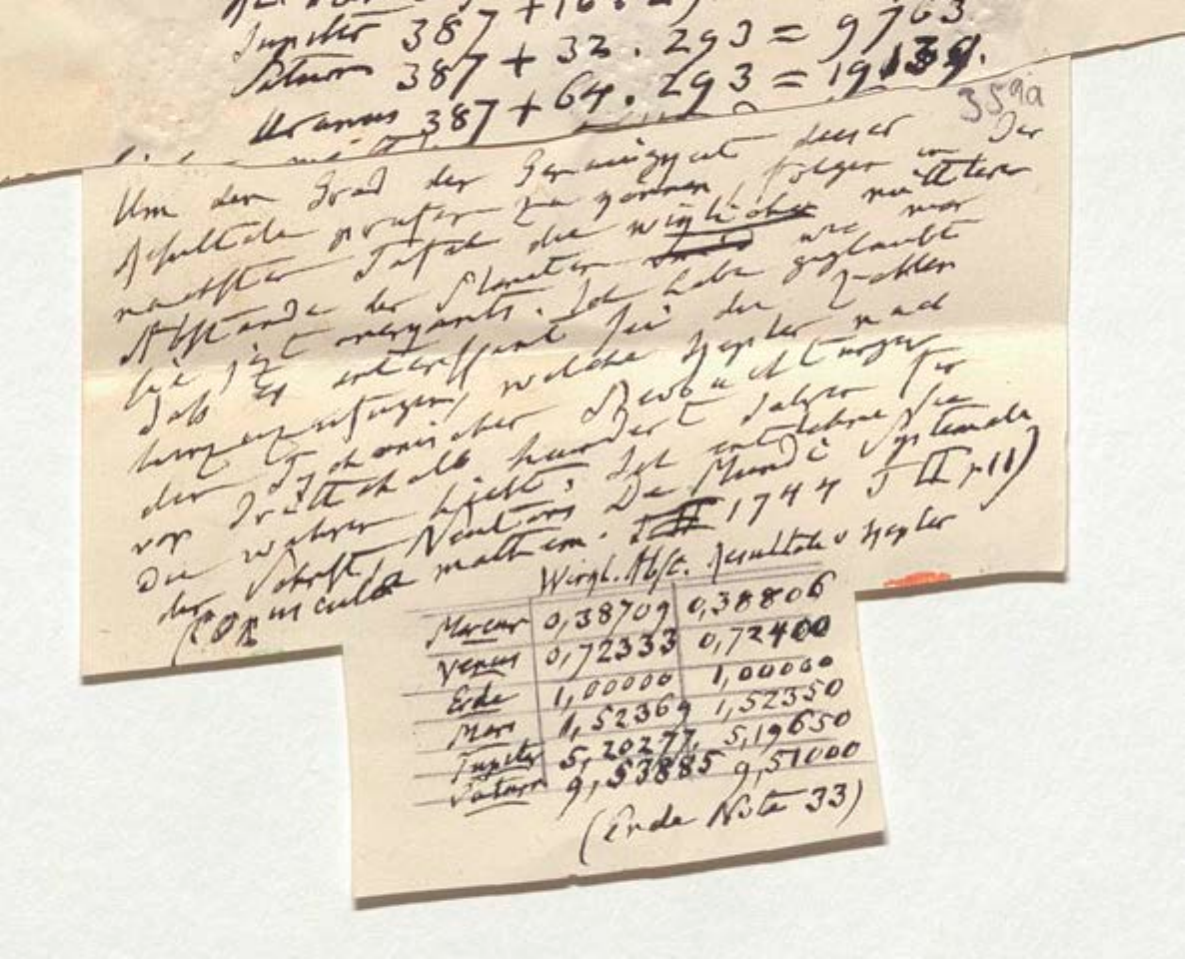 Jupiter 387 + 16. 29
Saturn 387 + 32. 293 = 9763
Uranus 387 + 64. 293 = 19139.
359a
Um den Grad der Genauigkeit dieser
Resultate prüfen zu können folgen in der
nächsten Tafel die wirklichen mittleren
Abstände der Planeten wie man
sie jezt anerkennt. Ich habe geglaubt
daß es interessant sei die Zahlen
hinzuzufügen, welche Kepler nach
den Tychonischen Beobachtungen
vor dritthalb hundert Jahren für
die wahren hielt. Ich entlehne sie
der Schrift Newtons De Mundi Systemate
(Opuscula mathem. 1744 T II p. 11)
Wirkl. Abst. Resultate v Kepler
Mercur 0,38709 0,38806
Venus 0,72333 0,72400
Erde 1,00000 1,00000
Mars 1,52369 1,52350
Jupiter 5,20277 5,19650
Saturn 9,53885 9,51000
(Ende Note 33)